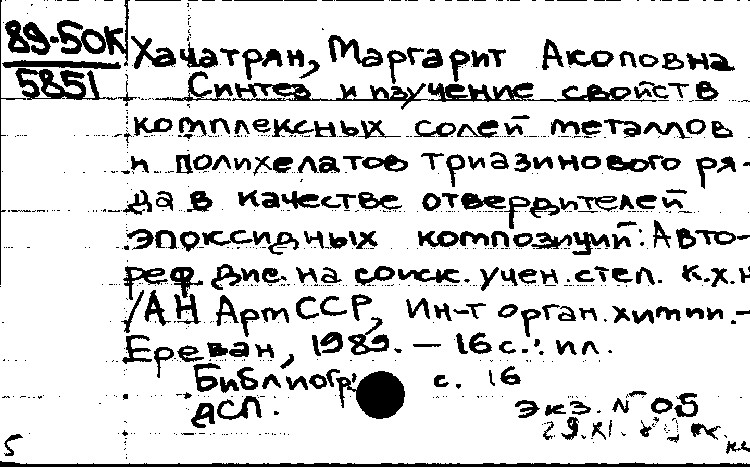 89-50К
5851
Хачатрян, Маргарит Акоповна
Синтез и изучение свойств
комплексных солей металлов
и полихелатов триазинового ря-
да в качестве отвердителей
эпоксидных композиций: Авто-
реф. дис. на соиск. учен. степ. к.х.н.
/АН АрмССР, Ин-т орган. химии. -
Ереван, 1989. — 16 с.: ил.
Библиогр. с. 16
ДСП.
экз. № 05
29.XI.
5